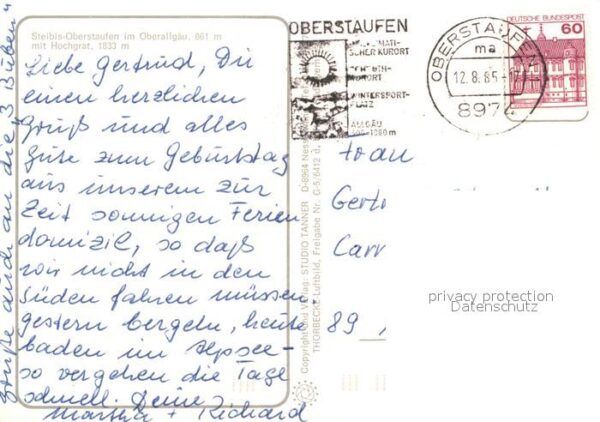 Steibis-Oberstaufen im Oberallgäu, 861 m
mit Hochgrat, 1833 m
Liebe Gertrud, Dir
einen herzlichen
Gruß und alles
Gute zum Geburtstag
aus unserem zur
Zeit sonnigen Ferien
domizil, so daß
wir nicht in den
Süden fahren müssen,
gestern bergeln, heute
baden im Alpsee -
so vergehen die Tage
schnell. Deine
Martha + Richard
Grüße auch an die 3 Buben"
Copyright und Verlag: STUDIO TANNER D-8964 Ness
THORBECKE Luftbild, Freigabe Nr. G-5/6412 d.
OBERSTAUFEN
SCHER KURORT
WINTERSPORT-
PLATZ
ALLGÄU
OBERSTAUFEN
ma
12.8.85
897
DEUTSCHE BUNDESPOST
60
Frau
Gert
Carr
89
privacy protection
Datenschutz